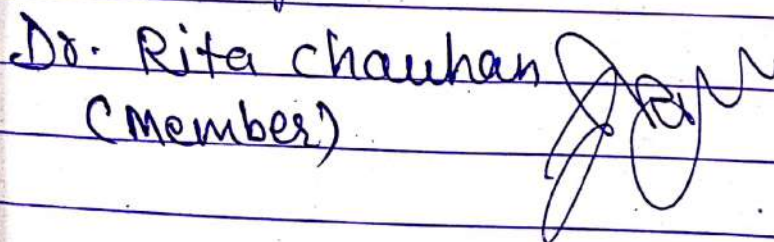 Dr. Rita Chauhan
(Member)